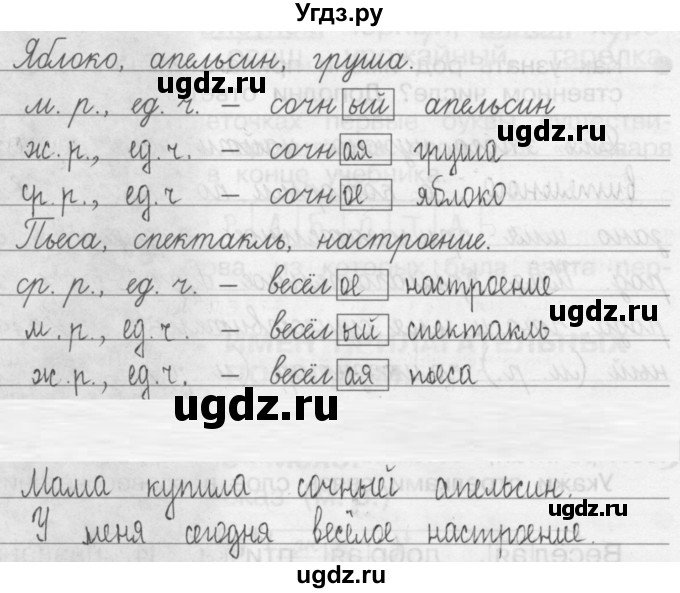 Угдз.ру
Яблоко, апельсин, груша.
м. р., ед. ч. – сочный апельсин
ж. р., ед. ч. – сочная груша
ср. р., ед. ч – сочное яблоко
Пьеса, спектакль, настроение.
ср. р., ед. ч. – весёлое настроение
м. р., ед. ч. – весёлый спектакль
ж. р., ед. ч. – весёлая пьеса
ugdz.ru
Мама купила сочный апельсин.
У меня сегодня веселое настроение.
ugdz.ru